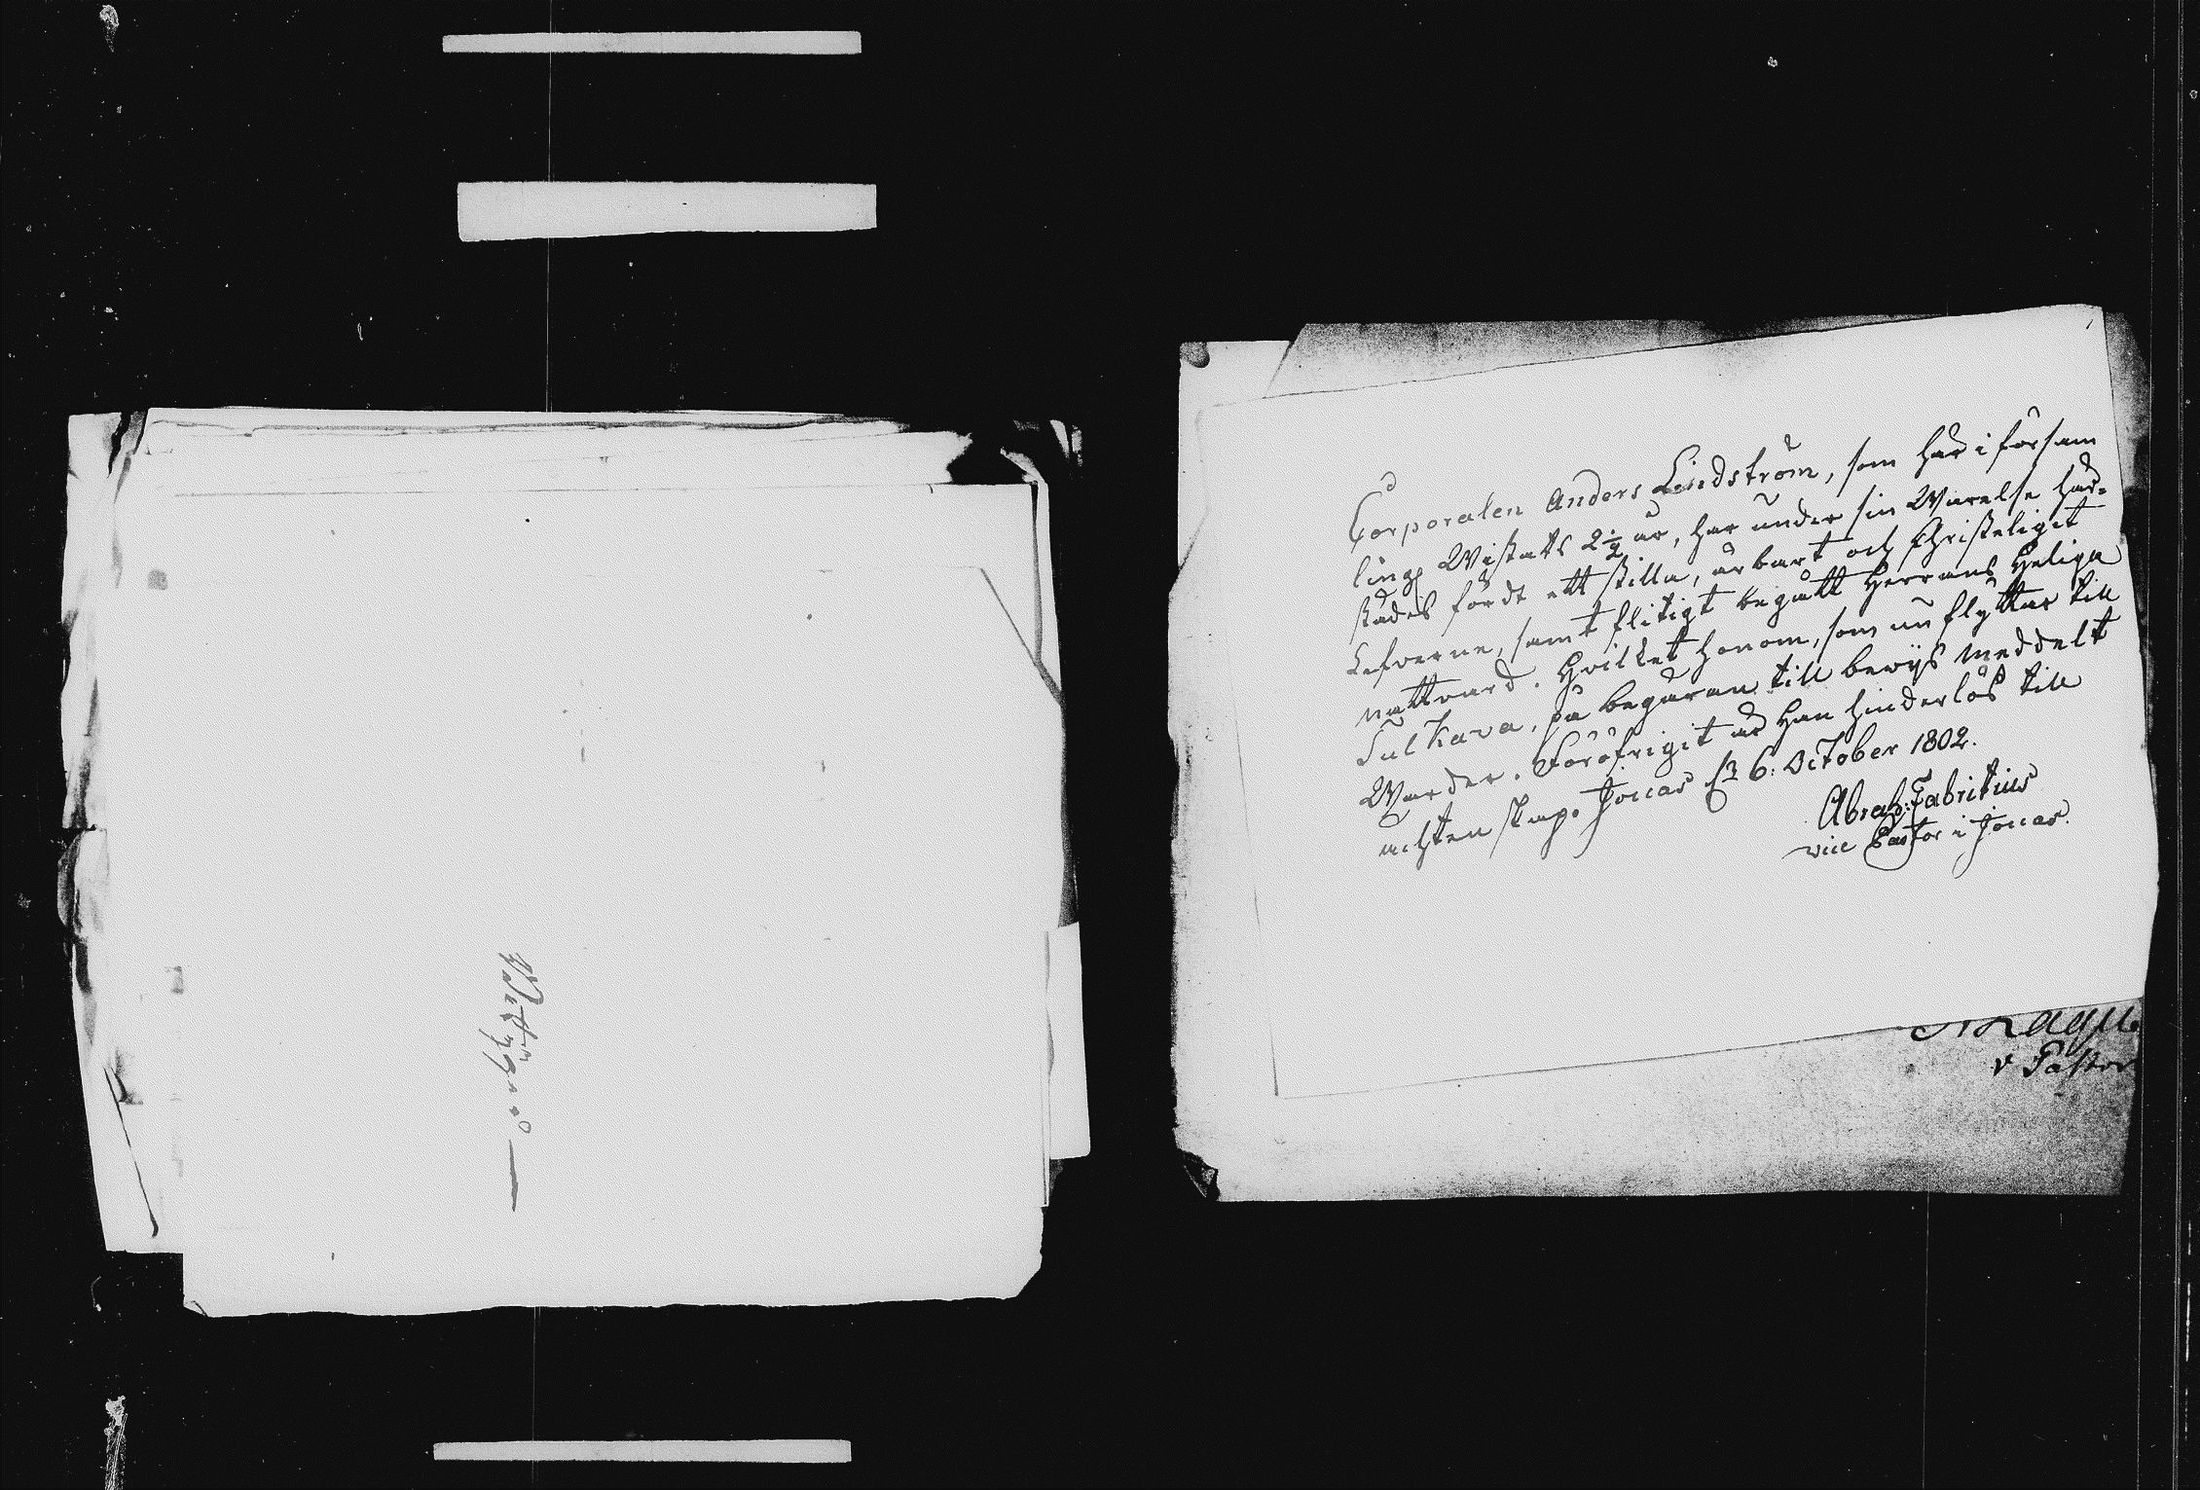 Corporalen Anders Lindström, som här i försam
ling Wistats 2 1/2 år, har under sin Warelse här-
städes fördt ett stilla, ärbart och Christeligit
Lefverne, samt flitigt begått Herrans Heliga
nattvard. Hvilket honom, som nu flyttar till
Sulkava, på begäran till bewijs meddelt
Warder. Föröfrigit är Han hinderlös till
ächtenskap. Jouas d. 6: October 1802.
Abrah: Fabritius
vice Pastor i Jouas.
v Pastor